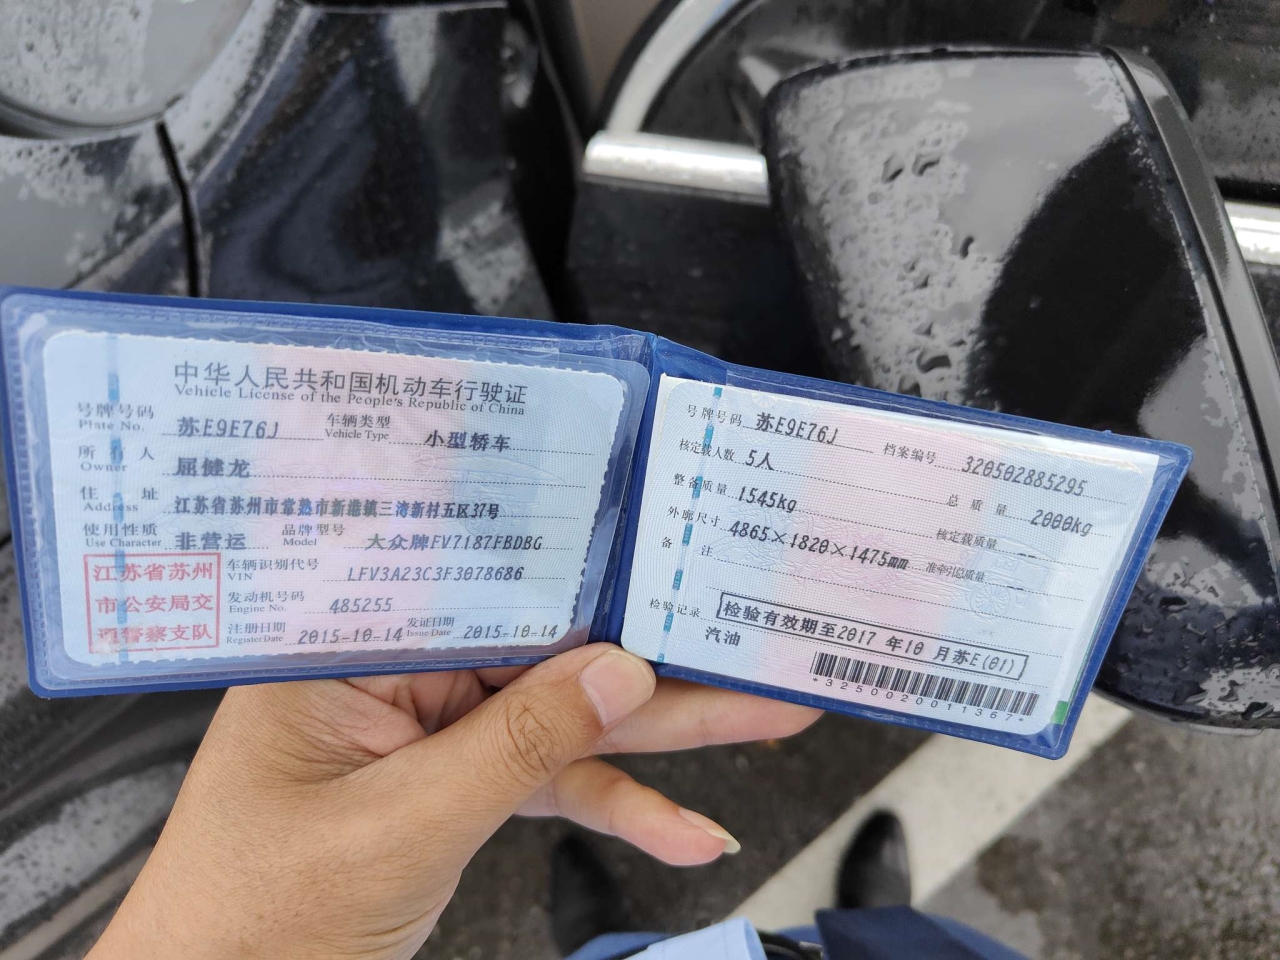 中华人民共和国机动车行驶证
Vehicle License of the People's Republic of China
号牌号码 苏E9E76J 车辆类型 小型轿车
Plate No. Vehicle Type
所有人 屈健龙
Owner
住址 江苏省苏州市常熟市新港镇三湾新村五区37号
Address
使用性质 非营运 品牌型号 大众牌FV7187FBDBG
Use Character Model
江苏省苏州
市公安局交
通警察支队
车辆识别代号 LFV3A23C3F3078686
VIN
发动机号码 485255
Engine No.
注册日期 2015-10-14 发证日期 2015-10-14
Register Date Issue Date
号牌号码 苏E9E76J 档案编号 320502885295
核定载人数 5人 总质量 2000kg
整备质量 1545kg 核定载质量 --
外廓尺寸 4865×1820×1475mm 准牵引总质量
备注
检验记录 检验有效期至2017年10月苏E(01)
汽油
*3250020011367*